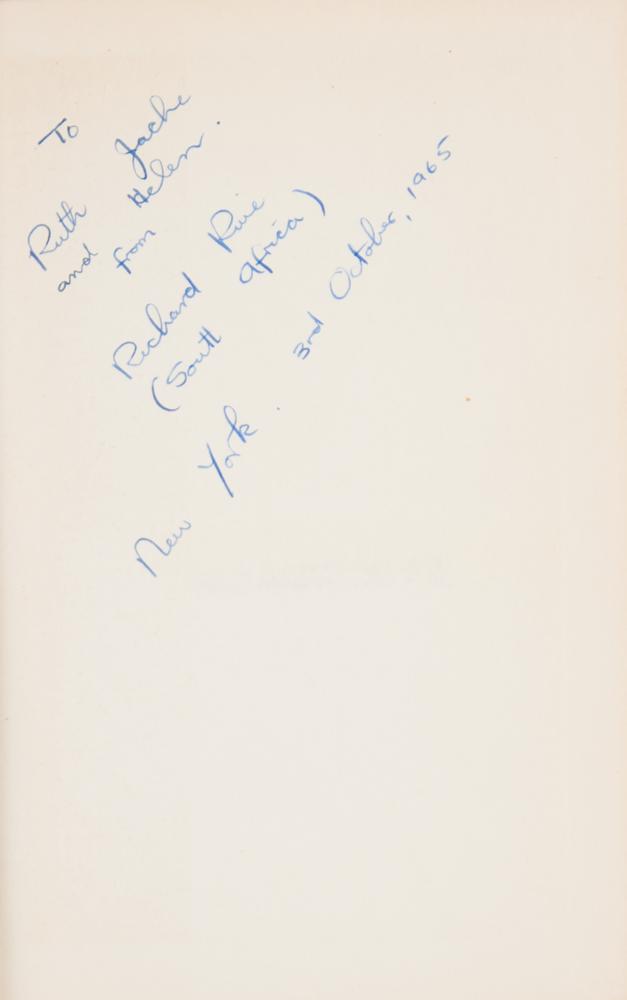 To
Ruth Jackie
and Helen.
from
Richard Rive
(South Africa)
New York. 3rd October, 1965